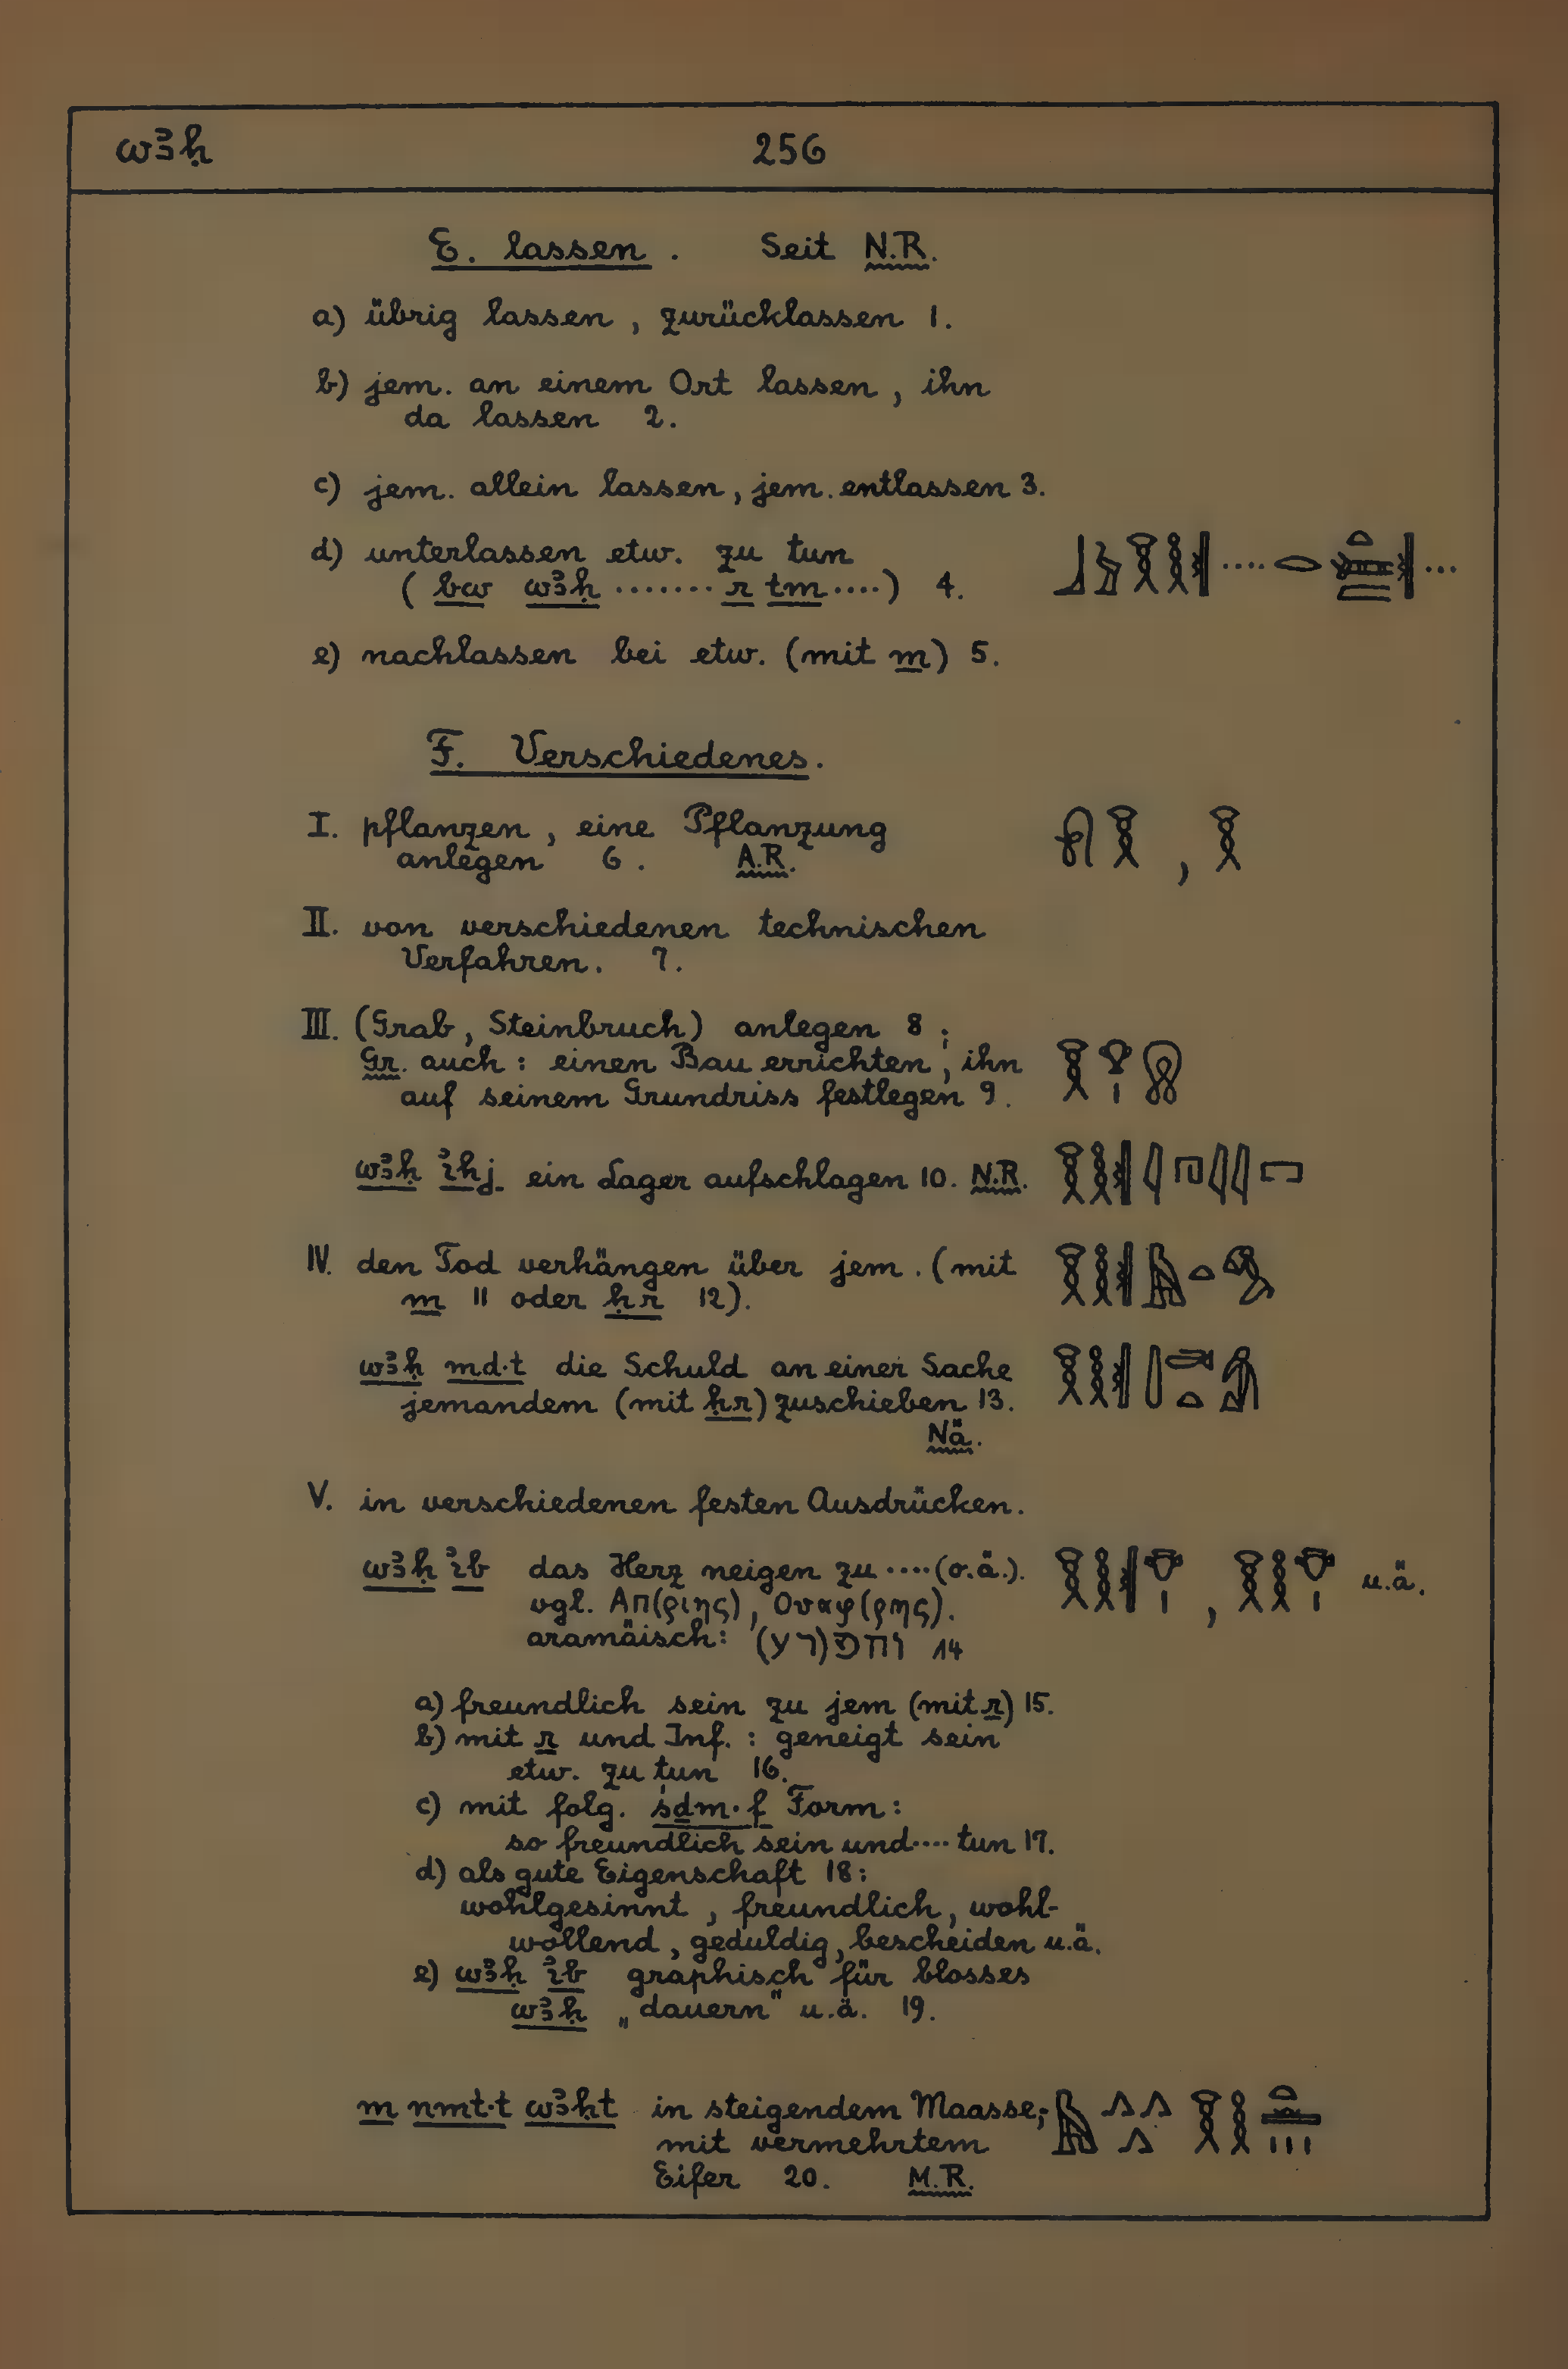 wꜣḥ 256
E. lassen. Seit N.R.
a) übrig lassen, zurücklassen 1.
b) jem. an einem Ort lassen, ihn
da lassen 2.
c) jem. allein lassen, jem. entlassen 3.
d) unterlassen etw. zu tun
(bw wꜣḥ ........ r tm ....) 4.
e) nachlassen bei etw. (mit m) 5.
F. Verschiedenes.
I. pflanzen, eine Pflanzung
anlegen 6. A.R.
II. von verschiedenen technischen
Verfahren. 7.
III. (Grab, Steinbruch) anlegen 8;
Gr. auch: einen Bau errichten, ihn
auf seinem Grundriss festlegen 9.
wꜣḥ ꞽhj. ein Lager aufschlagen 10. N.R.
IV. den Tod verhängen über jem. (mit
m 11 oder ḥr 12).
wꜣḥ md·t die Schuld an einer Sache
jemandem (mit ḥr) zuschieben 13.
Nä.
V. in verschiedenen festen Ausdrücken.
wꜣḥ ꞽb das Herz neigen zu .... (o.ä.). , u.ä.
vgl. Απ(ριης), Ουαφ(ρης).
aramäisch: וחפ(רע) 14
a) freundlich sein zu jem (mit r) 15.
b) mit r und Inf.: geneigt sein
etw. zu tun 16.
c) mit folg. śḏm·f Form:
so freundlich sein und .... tun 17.
d) als gute Eigenschaft 18:
wohlgesinnt, freundlich, wohl-
wollend, geduldig, bescheiden u.ä.
e) wꜣḥ ꞽb graphisch für blosses
wꜣḥ „dauern" u.ä. 19.
m nmt·t wꜣḥt in steigendem Maasse,
mit vermehrtem
Eifer 20. M.R.